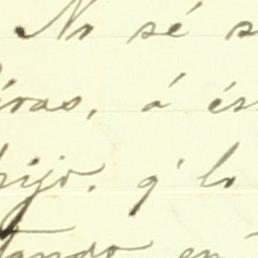 No sé s
iras, á és
hijo. q' lo
tando en